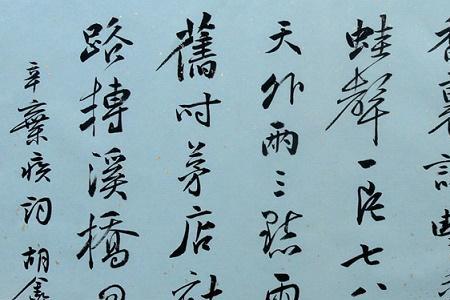 香裏說豐
蛙聲一片七八
天外兩三點雨
舊時茅店社
路轉溪橋
辛棄疾詞胡鑫